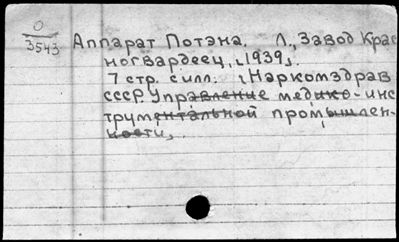 0
3543
Аппарат Потэна. Л., Завод Крас
ногвардеец, [1939].
7 стр. с илл. [Наркомздрав
СССР. Управление медико-инс
трументальной промышлен-
ности].